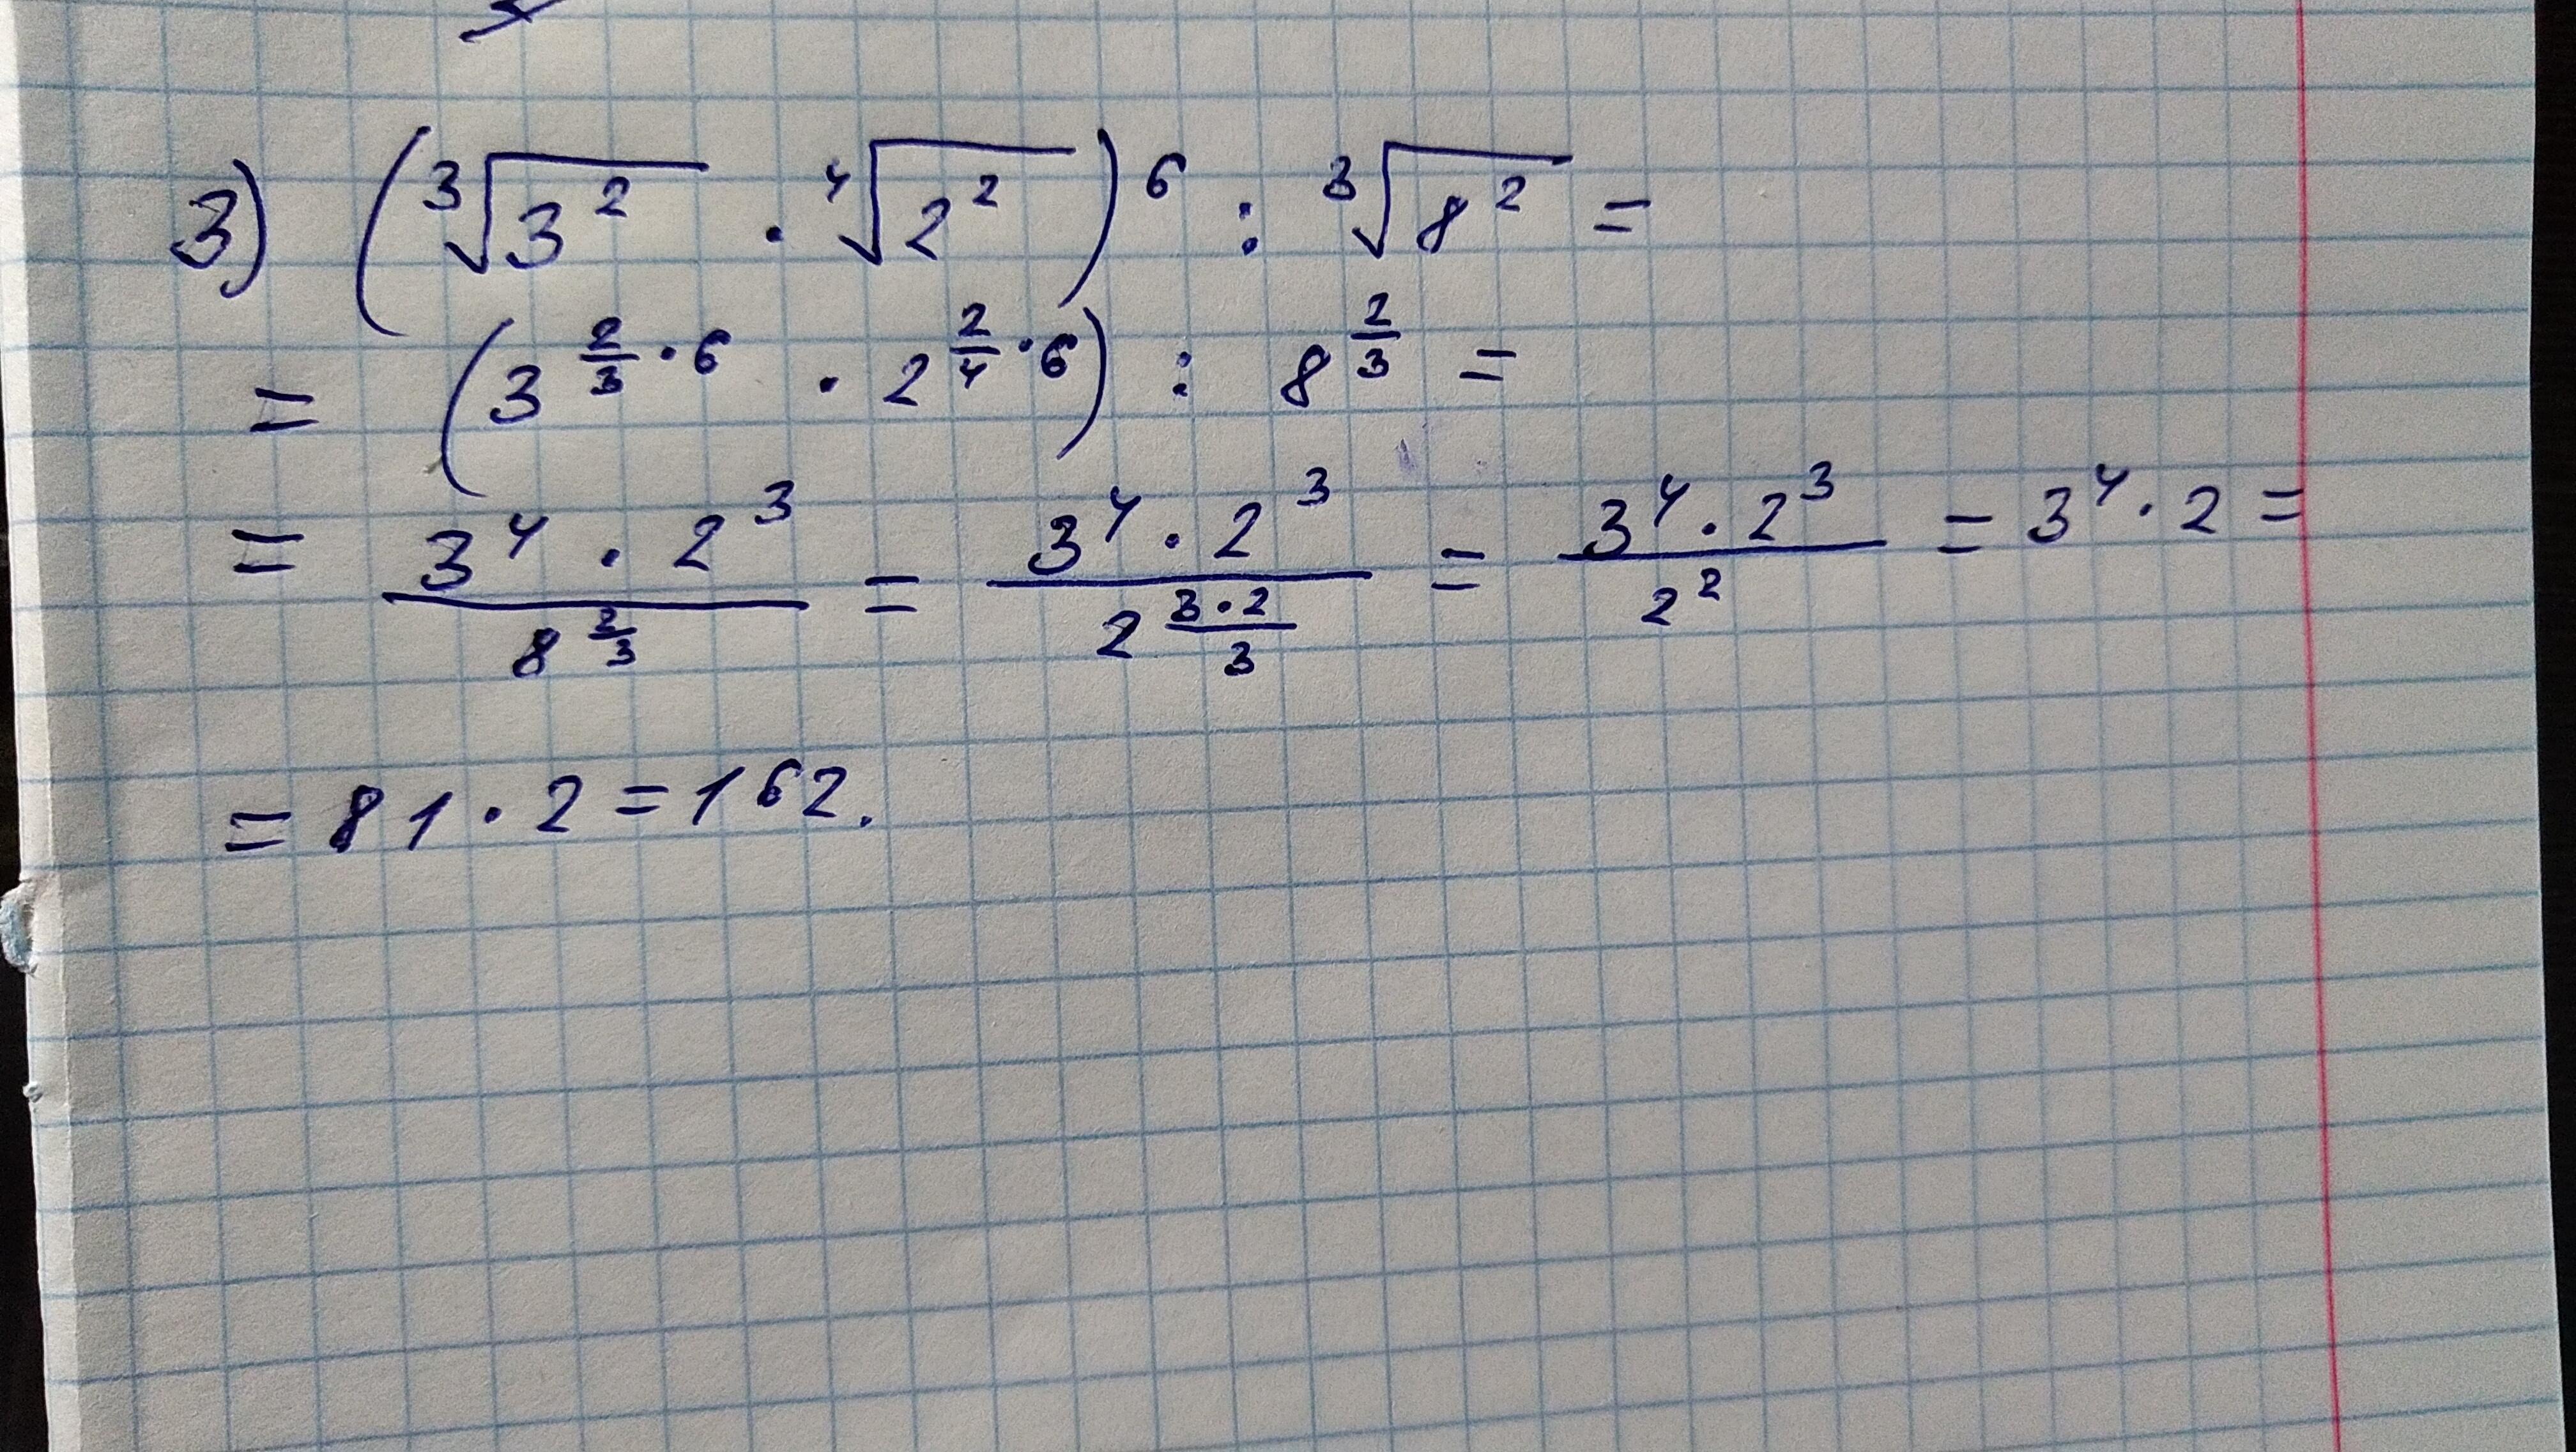 3) (∛(3²) · ∜(2²))⁶ : ∛(8²) =
= (3^(2/3 · 6) · 2^(2/4 · 6)) : 8^(2/3) =
= (3⁴ · 2³)/(8^(2/3)) = (3⁴ · 2³)/(2^((3·2)/3)) = (3⁴ · 2³)/(2²) = 3⁴ · 2 =
= 81 · 2 = 162.